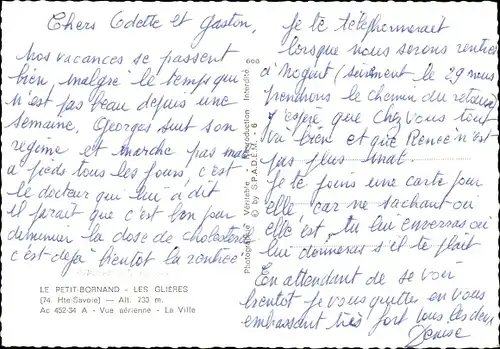 Chers Odette et Gaston,
Nos vacances se passent
bien, malgré le temps qui
n'est pas beau depuis une
semaine. Georges suit son
régime et marche pas mal
à pieds tous les jours c'est
le docteur qui lui à dit
il parait que c'est bon pour
diminuer la dose de cholesterol
c'est déjà bientôt la rentrée
LE PETIT-BORNAND - LES GLIÈRES
(74. Hte-Savoie) — Alt. 733 m.
Ac 452-34 A - Vue aérienne - La Ville
Photographie Véritable - Reproduction Interdite
© by S.P.A.D.E.M. 6
Je te téléphonerait
lorsque nous serons rentrés
à Nogent (surement le 29 nous
prendrons le chemin du retour)
J'espère que chez vous tout
va bien et que Renée n'est
pas plus mal.
Je te joins une carte pour
elle car ne sachant ou
elle est, tu lui enverras ou
lui donneras s'il te plait
En attendant de se voir
bientôt je vous quitte en vous
embrassant très fort tous les deux
Denise